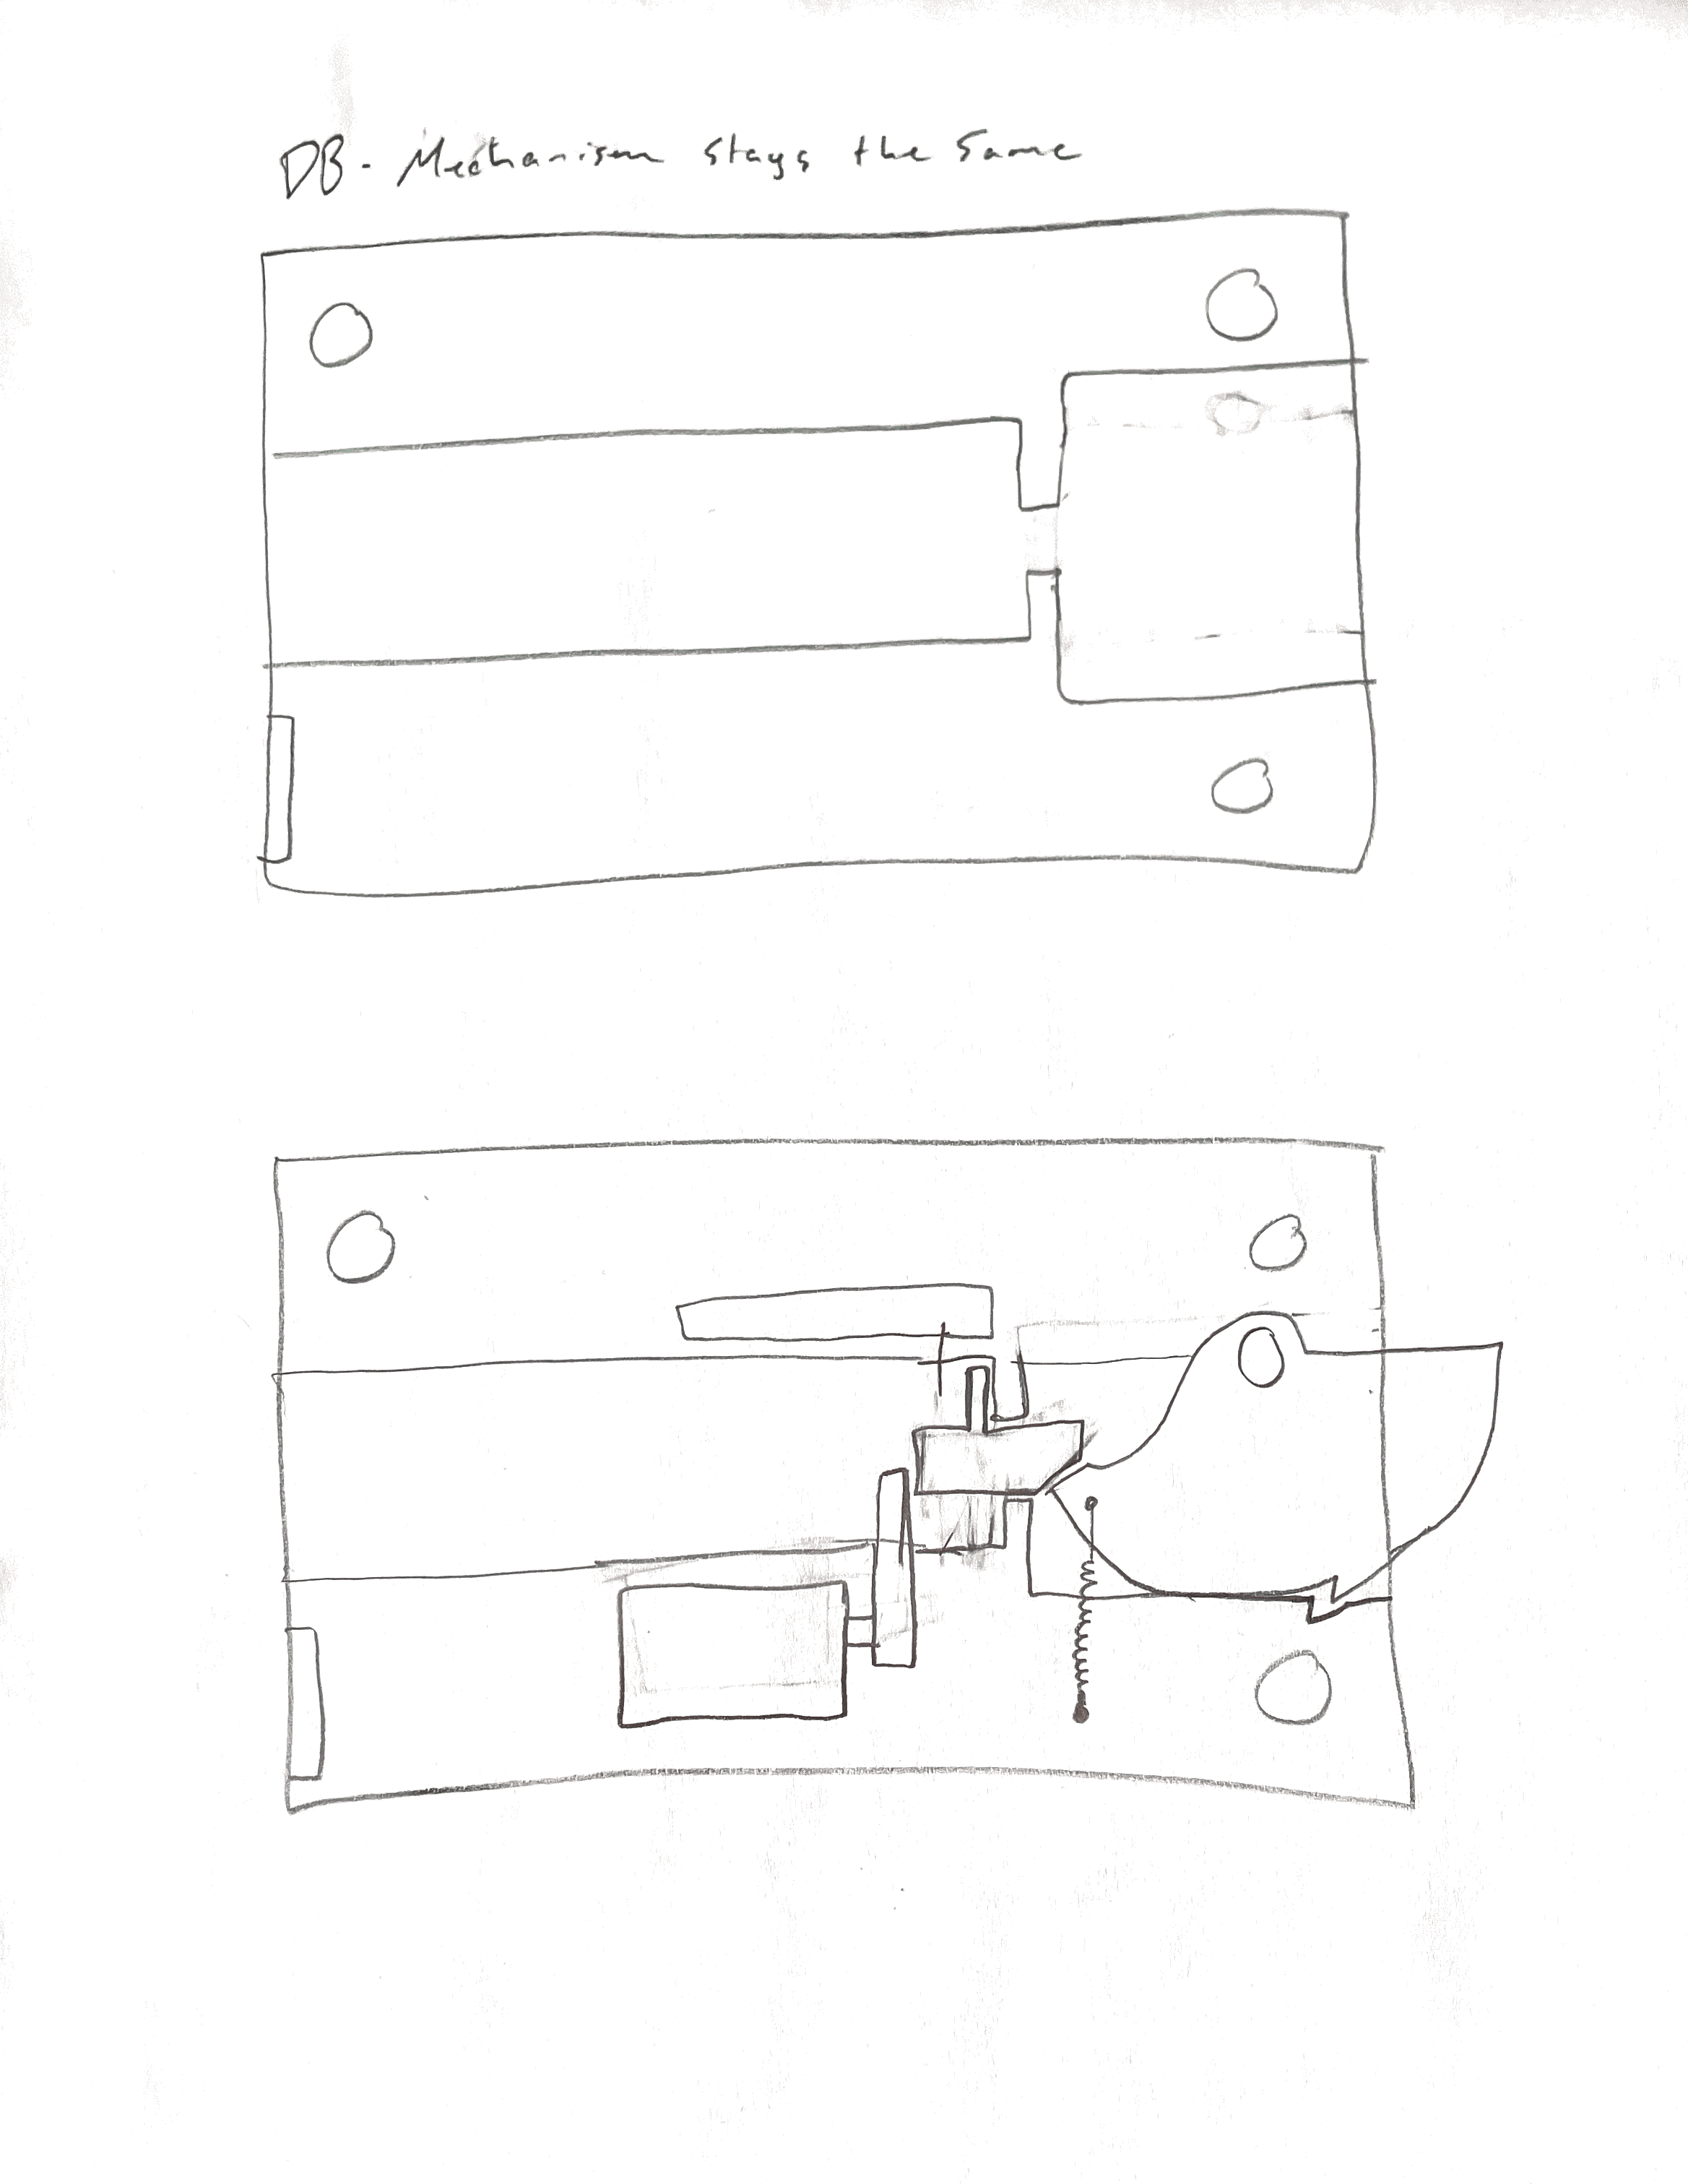 DB - Mechanism stays the Same